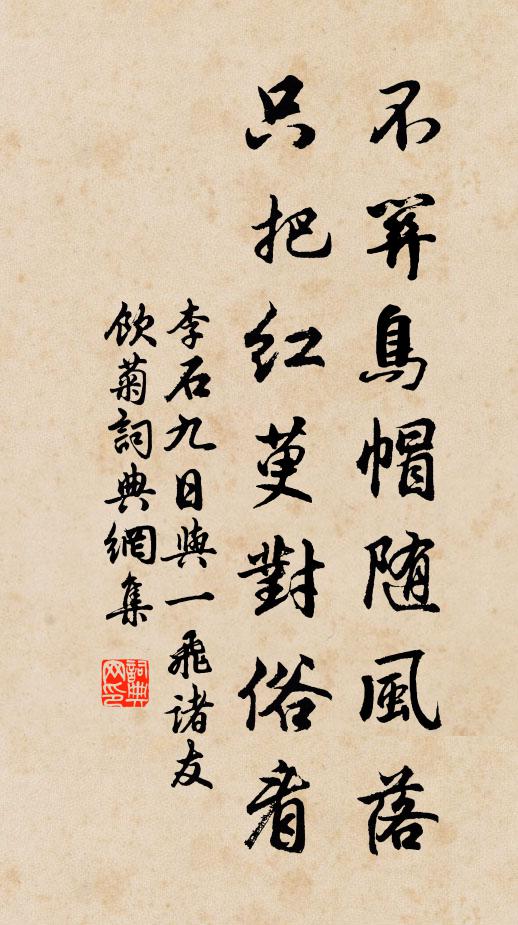 不筭烏帽随風落
只把紅萸對俗看
李石九日與一飛諸友
飲菊詞典網集
詞典
网印